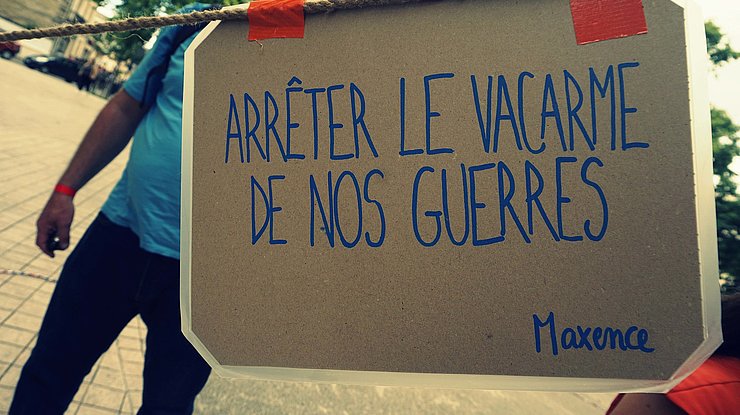 ARRÊTER LE VACARME
DE NOS GUERRES
Maxence